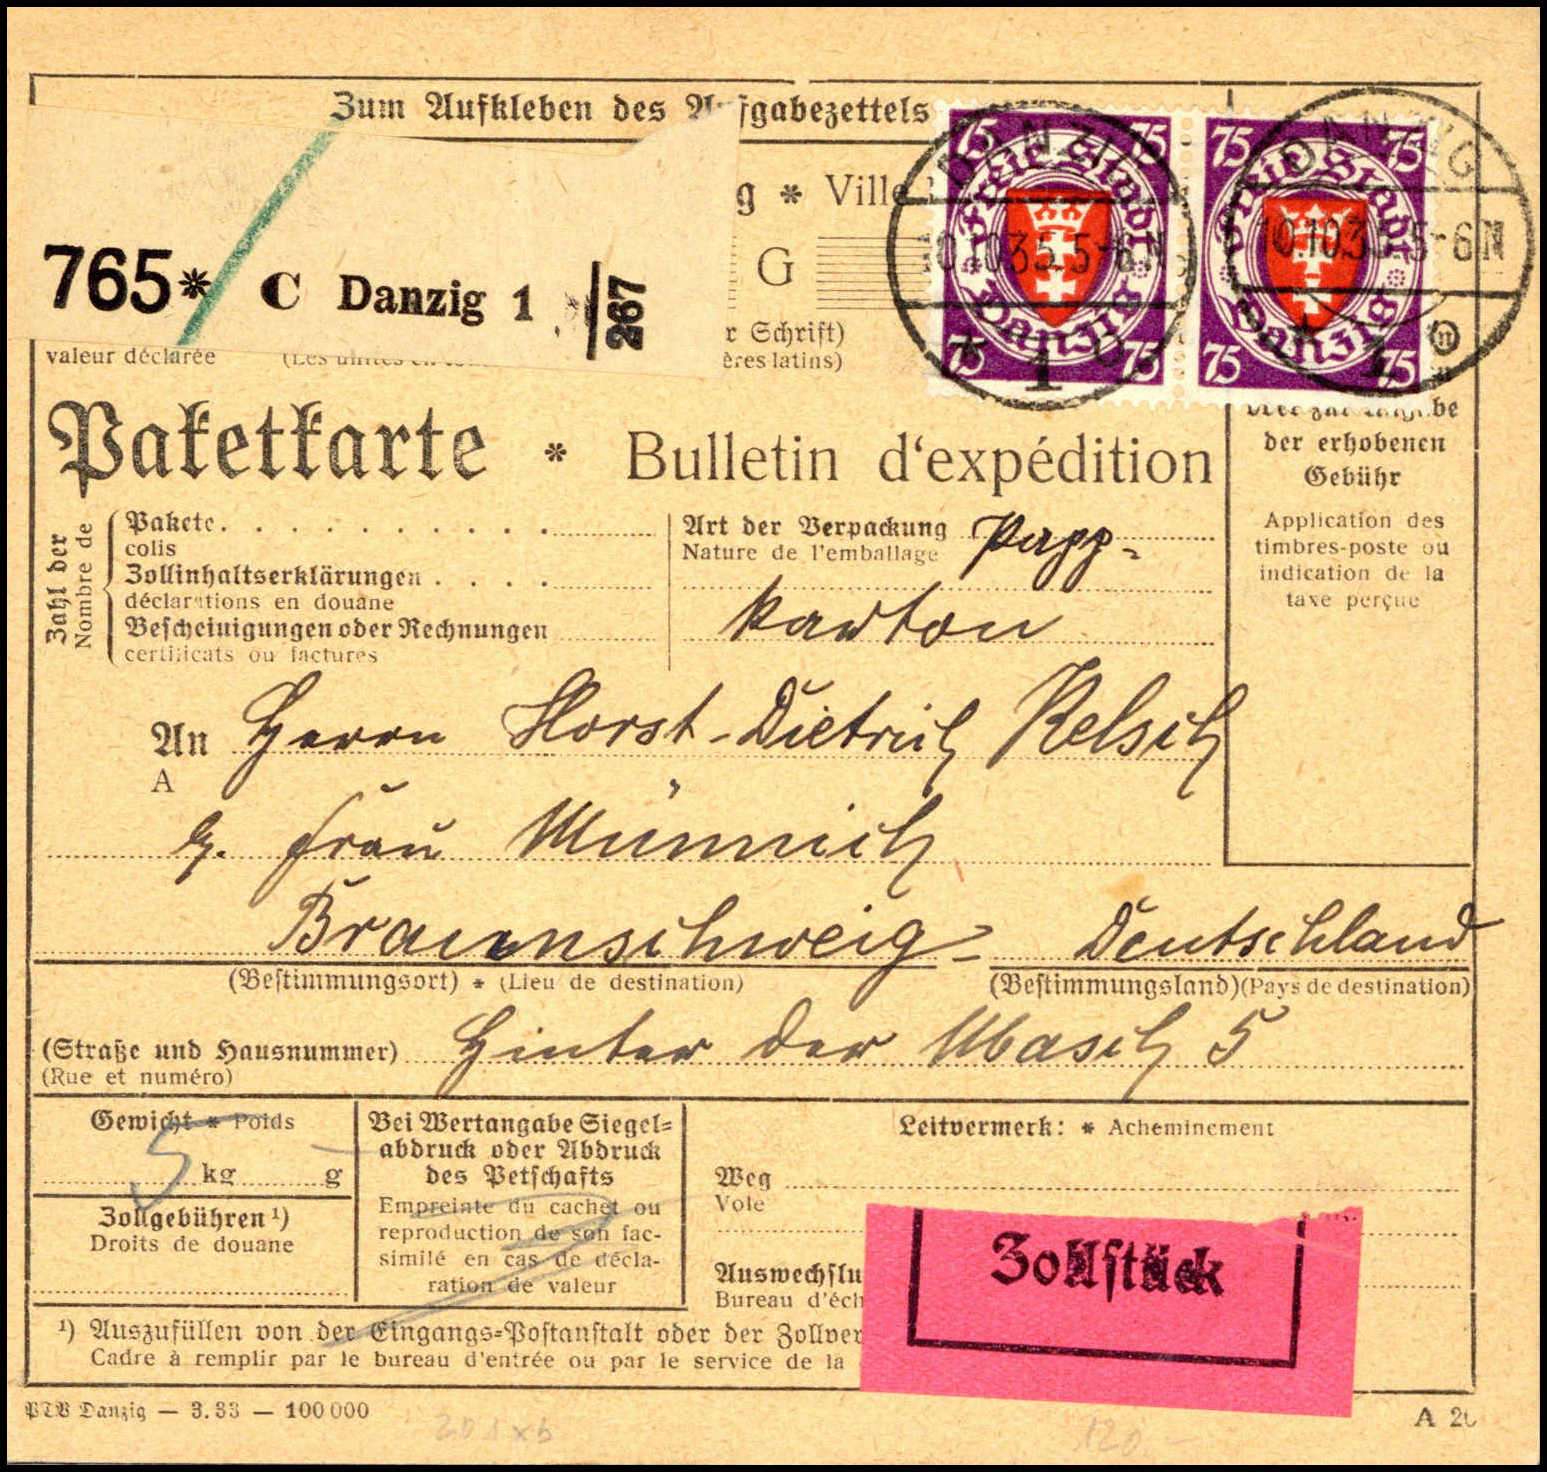 Zum Aufkleben des Aufgabezettels
g * Ville
G
765* C Danzig 1 267
r Schrift)
valeur déclarée
ères latins)
75 75 75 75
Freie Stadt Danzig
75 75 75 75
Freie Stadt Danzig
DANZIG
10.10.35.5-6N
* 1 o
DANZIG
10.10.35.5-6N
* 1 n
Paketkarte * Bulletin d'expédition
der erhobenen
Gebühr
Application des
timbres-poste ou
indication de la
taxe perçue
Zahl der
Nombre de
Pakete
colis
Zollinhaltserklärungen
déclarations en douane
Bescheinigungen oder Rechnungen
certificats ou factures
Art der Verpackung Papp-
Nature de l'emballage
karton
An Herrn Horst-Dietrich Kelsch
A
Frau Münnich
Braunschweig - Deutschland
(Bestimmungsort) * (Lieu de destination) (Bestimmungsland) (Pays de destination)
(Straße und Hausnummer) Hinter der Masch 5
(Rue et numéro)
Gewicht * Poids
5 kg g
Zollgebühren ¹)
Droits de douane
Bei Wertangabe Siegel=
abdruck oder Abdruck
des Petschafts
Empreinte du cachet ou
reproduction de son fac-
similé en cas de décla-
ration de valeur
Leitvermerk: * Acheminement
Weg
Voie
Auswechslu
Bureau d'éch
Zollstück
¹) Auszufüllen von der Eingangs=Postanstalt oder der Zollver
Cadre à remplir par le bureau d'entrée ou par le service de la
PTV Danzig — 3. 33 — 100 000
A 26
120 -